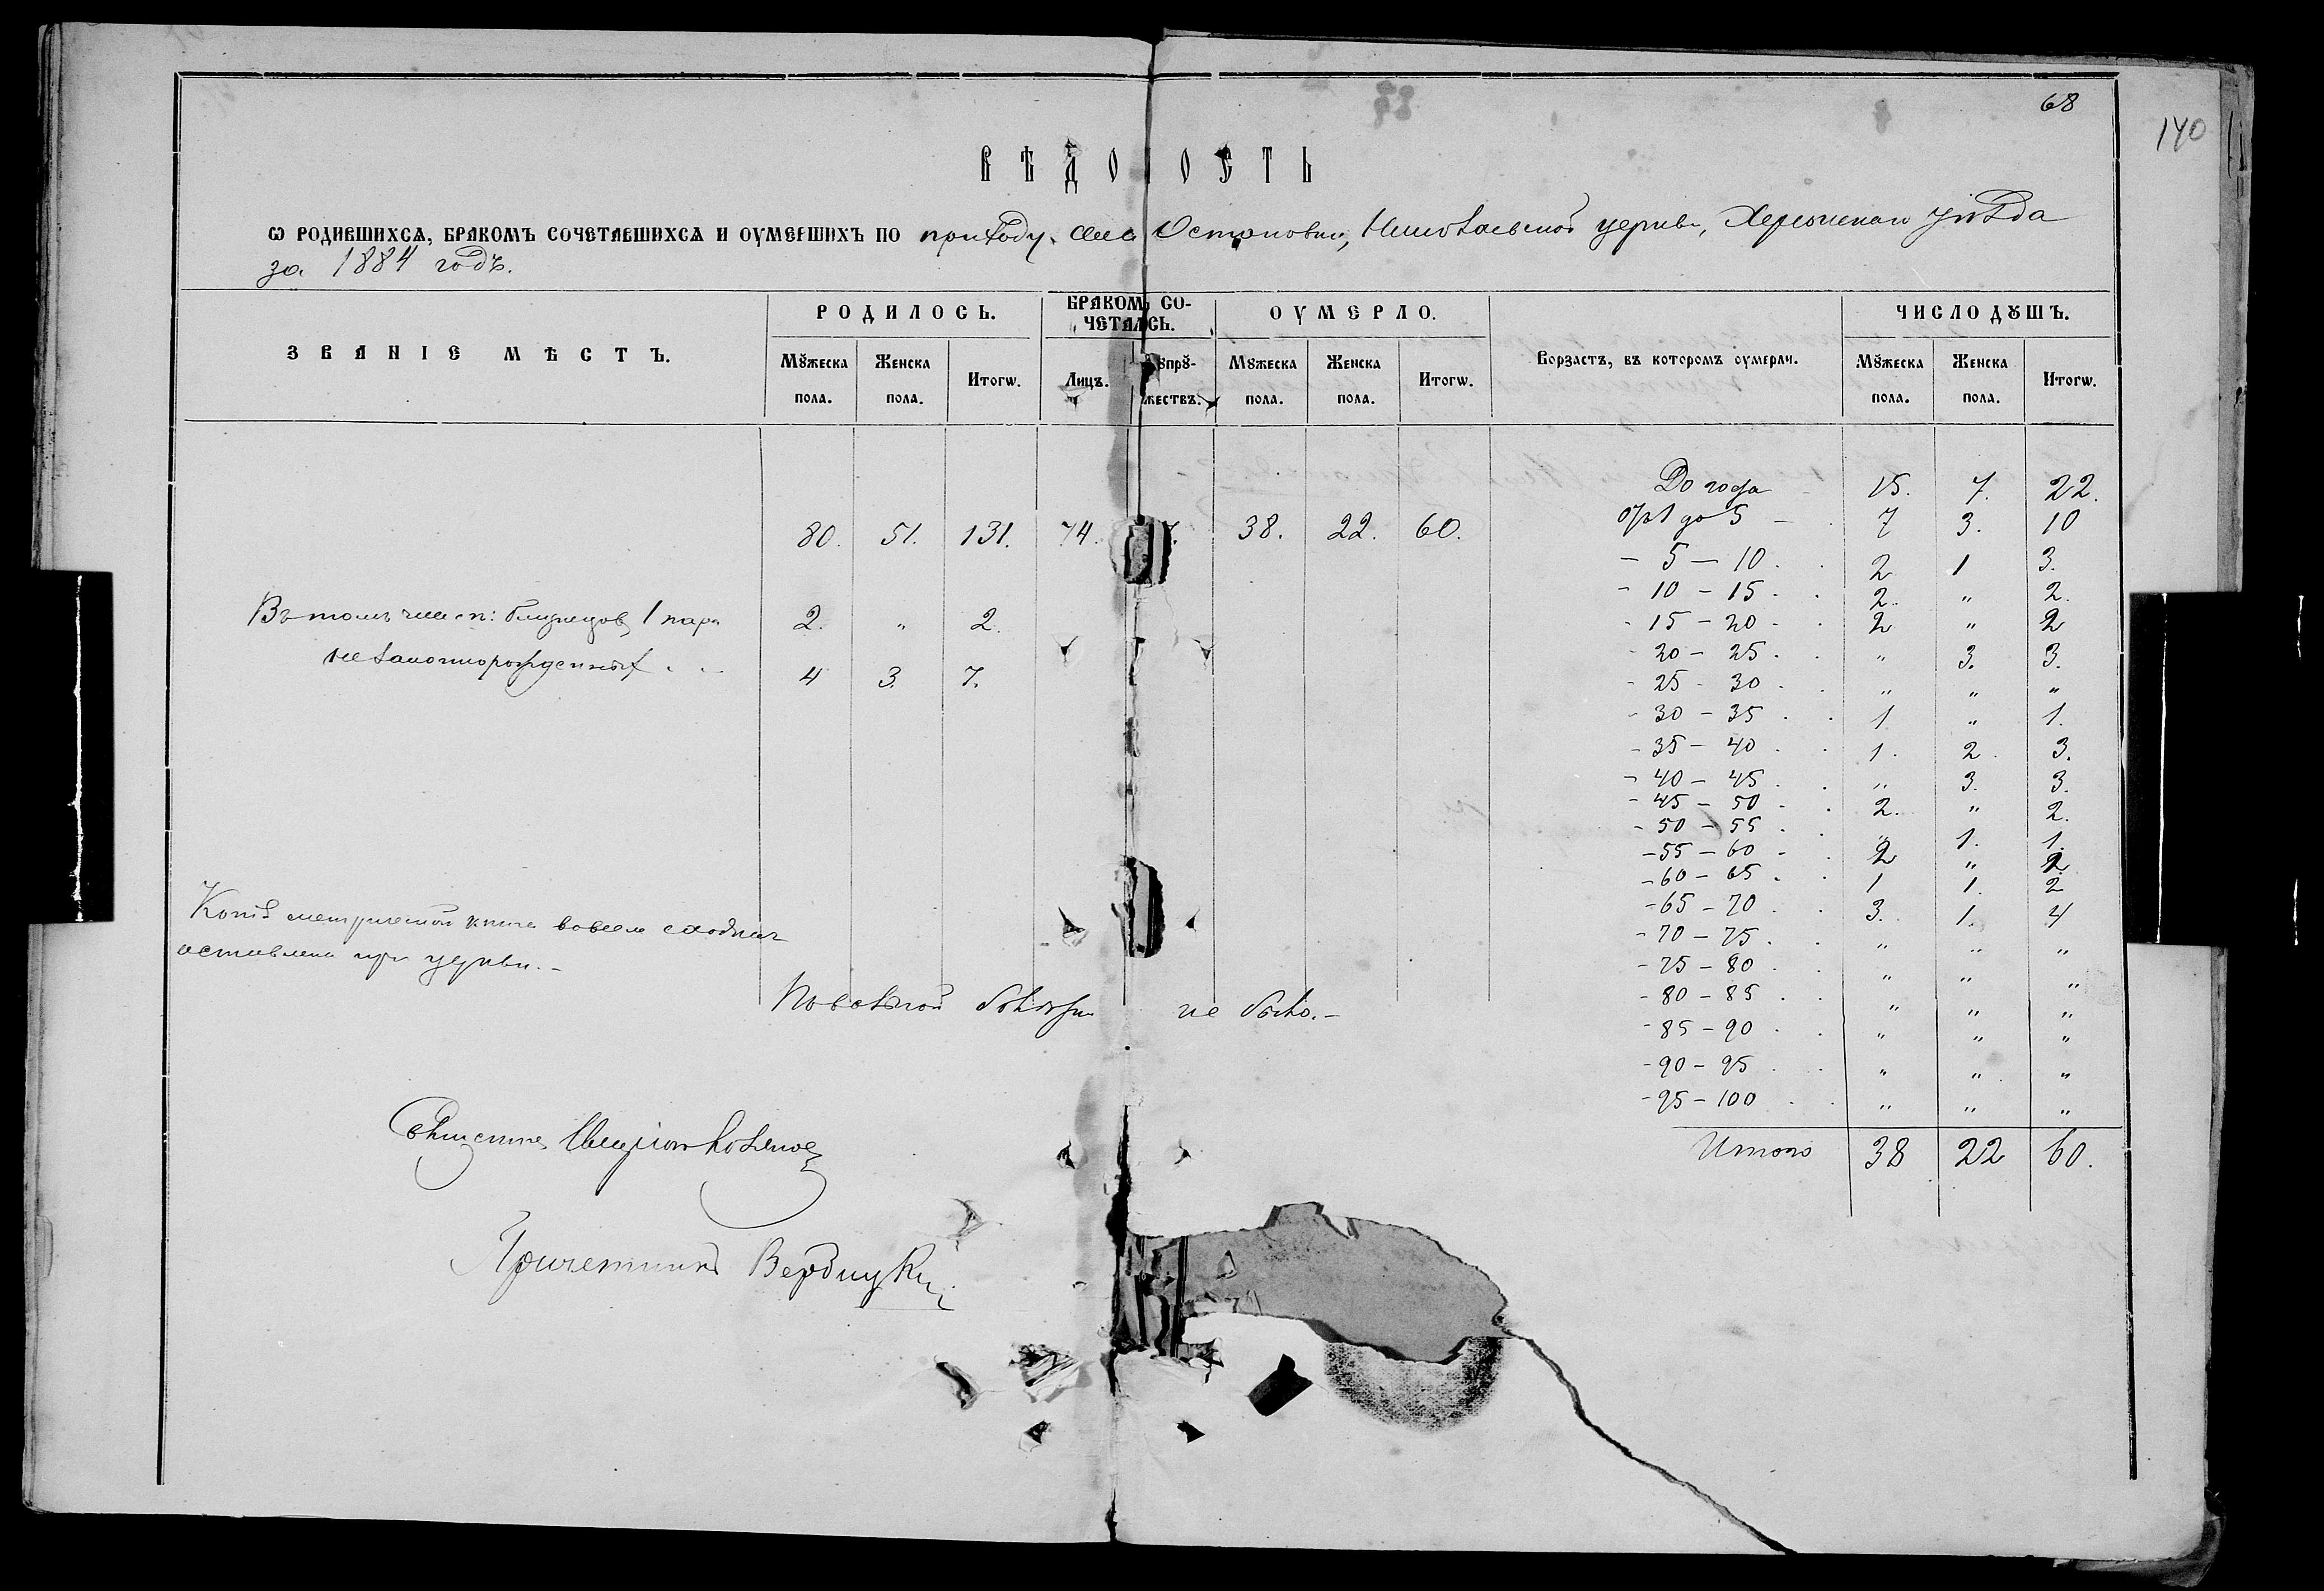 68
140
ВѢДО ОСТЬ
Ѡ РОДИВШИХСѦ, БРАКОМЪ СОЧЕТАВШИХСѦ И ОУМЕРШИХЪ ПО приходу села Остановки, Николаевской церкви, Херсонскаго уѣзда
за 1884 годъ.
ЗВАНІЕ МѢСТЪ.
РОДИЛОСЬ.
БРАКОМЪ СО-
ЧЕТАЛОСЬ.
ОУМЕРЛО.
Ворзастъ, въ которомъ оумерли.
ЧИСЛО ДꙊШЪ.
Мꙋжеска пола.
Женска пола.
Итогѡ.
Лицъ.
упрꙋ-
жествъ.
Мꙋжеска пола.
Женска пола.
Итогѡ.
Мꙋжеска пола.
Женска пола.
Итогѡ.
80. 51. 131. 74. 38. 22. 60.
Въ томъ числѣ: близнецовъ 1 пара 2. " 2.
незаконнорожденныхъ . . 4 3. 7.
До года 15. 7. 22.
отъ 1 до 5 7 3. 10
- 5 - 10 . . 2 1 3.
- 10 - 15 . . 2. " 2.
- 15 - 20 . . 2 " 2
- 20 - 25 . . " 3. 3.
- 25 - 30 . . " " "
- 30 - 35 . . 1 " 1.
- 35 - 40 . . 1. 2. 3.
- 40 - 45 . . " 3. 3.
- 45 - 50 . . 2. " 2.
- 50 - 55 . . " 1. 1.
- 55 - 60 . . 2 " 2
- 60 - 65 . . 1 1. 2
- 65 - 70 . . 3. 1. 4
- 70 - 75 . . " " "
- 75 - 80 . . " " "
- 80 - 85 . . " " "
- 85 - 90 . . " " "
- 90 - 95 . . " " "
- 95 - 100 . . " " "
Итого 38 22 60.
Копія метрической книги вовсем сходная
оставлена при церкви.-
Повальной болѣзни не было.-
Священникъ
Причетникъ Вербицкій